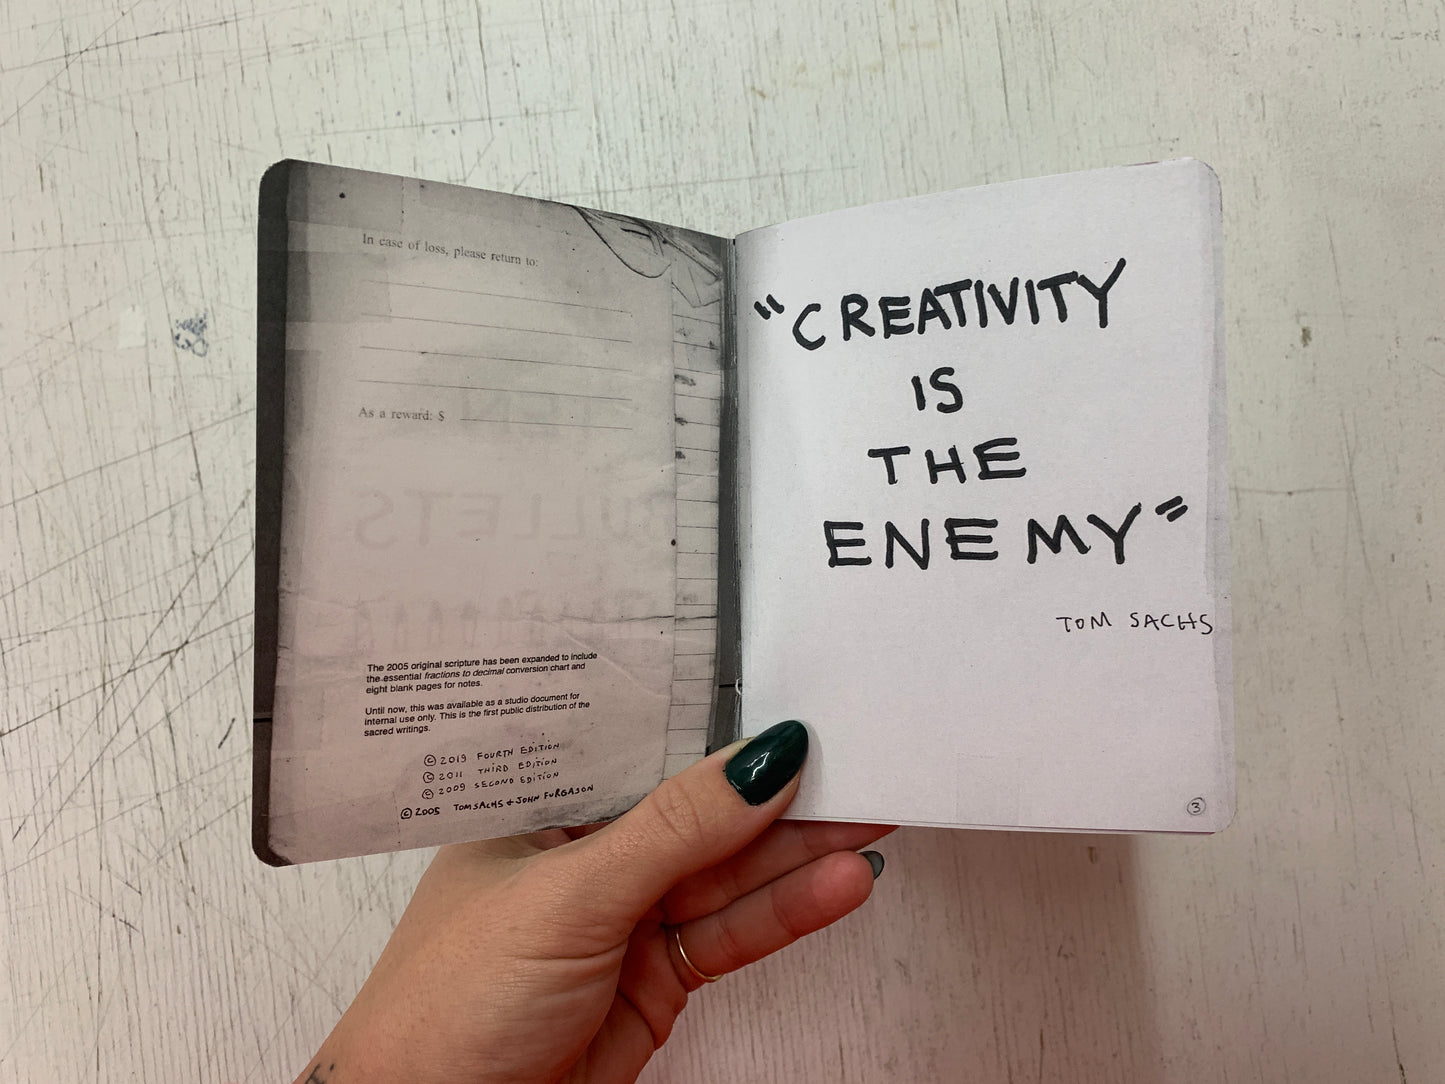 In case of loss, please return to:
As a reward: $
The 2005 original scripture has been expanded to include
the essential fractions to decimal conversion chart and
eight blank pages for notes.
Until now, this was available as a studio document for
internal use only. This is the first public distribution of the
sacred writings.
© 2019 FOURTH EDITION
© 2011 THIRD EDITION
© 2009 SECOND EDITION
© 2005 TOM SACHS & JOHN FURGASON
"CREATIVITY
IS
THE
ENEMY"
TOM SACHS
3